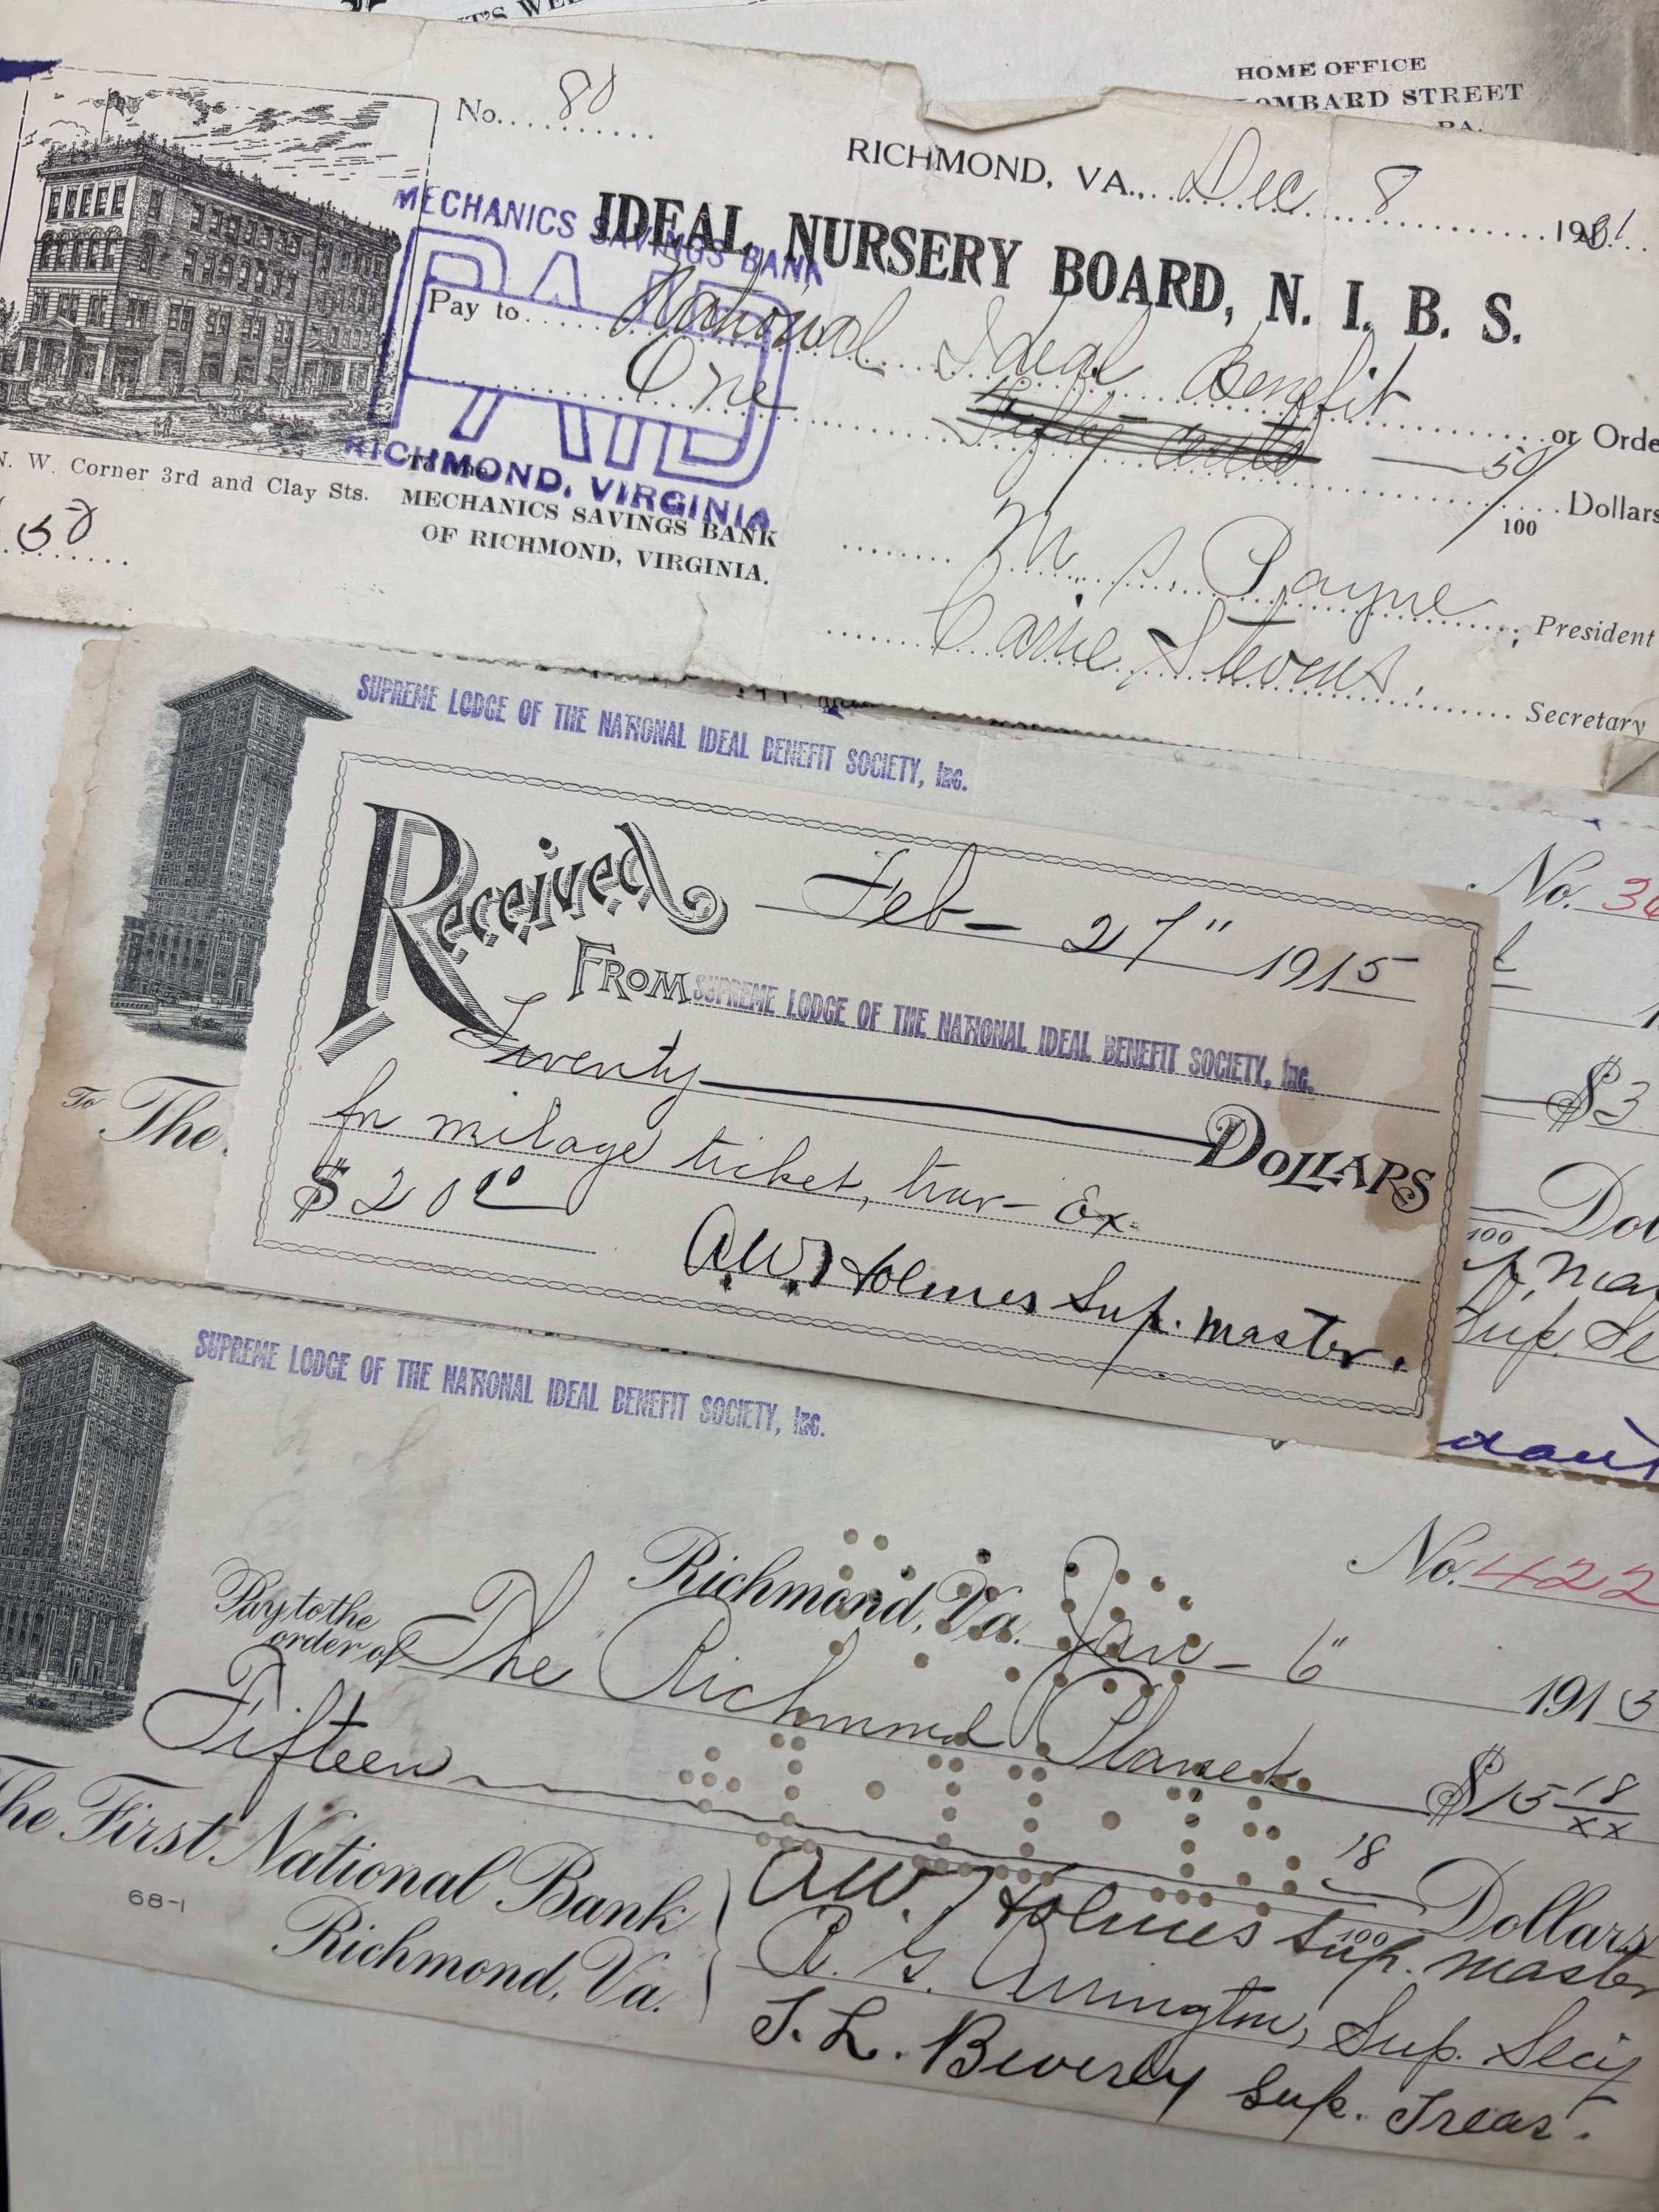 HOME OFFICE
LOMBARD STREET
PA.
No. 80
RICHMOND, VA., Dec 8 1921
IDEAL NURSERY BOARD, N. I. B. S.
MECHANICS SAVINGS BANK
PAID
RICHMOND, VIRGINIA
Pay to National Ideal Benefit or Orde
One Fifty cents 50/100 Dollars
N. W. Corner 3rd and Clay Sts.
To the
MECHANICS SAVINGS BANK
OF RICHMOND, VIRGINIA.
50
Payne President
Carrie Stevens. Secretary
SUPREME LODGE OF THE NATIONAL IDEAL BENEFIT SOCIETY, Inc.
No. 3
$3
100 Dol
Sup. Se
To The
RECEIVED Feb - 27" 1915
FROM SUPREME LODGE OF THE NATIONAL IDEAL BENEFIT SOCIETY, Inc.
Twenty DOLLARS
for milage ticket, trav - Ex.
$20 00
A.W. Holmes Sup. Master.
SUPREME LODGE OF THE NATIONAL IDEAL BENEFIT SOCIETY, Inc.
No. 422
Richmond, Va. Jan - 6" 1913
Pay to the order of The Richmond Planet $15 18/xx
Fifteen 18/100 Dollars
The First National Bank
68-1
Richmond, Va.
A.W. Holmes Sup. Master
R. G. Arrington, Sup. Secy
T. L. Beverly Sup. Treas.